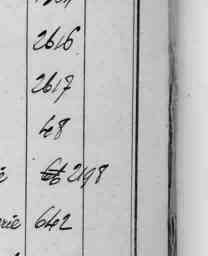 2616
2617
48
2198
642